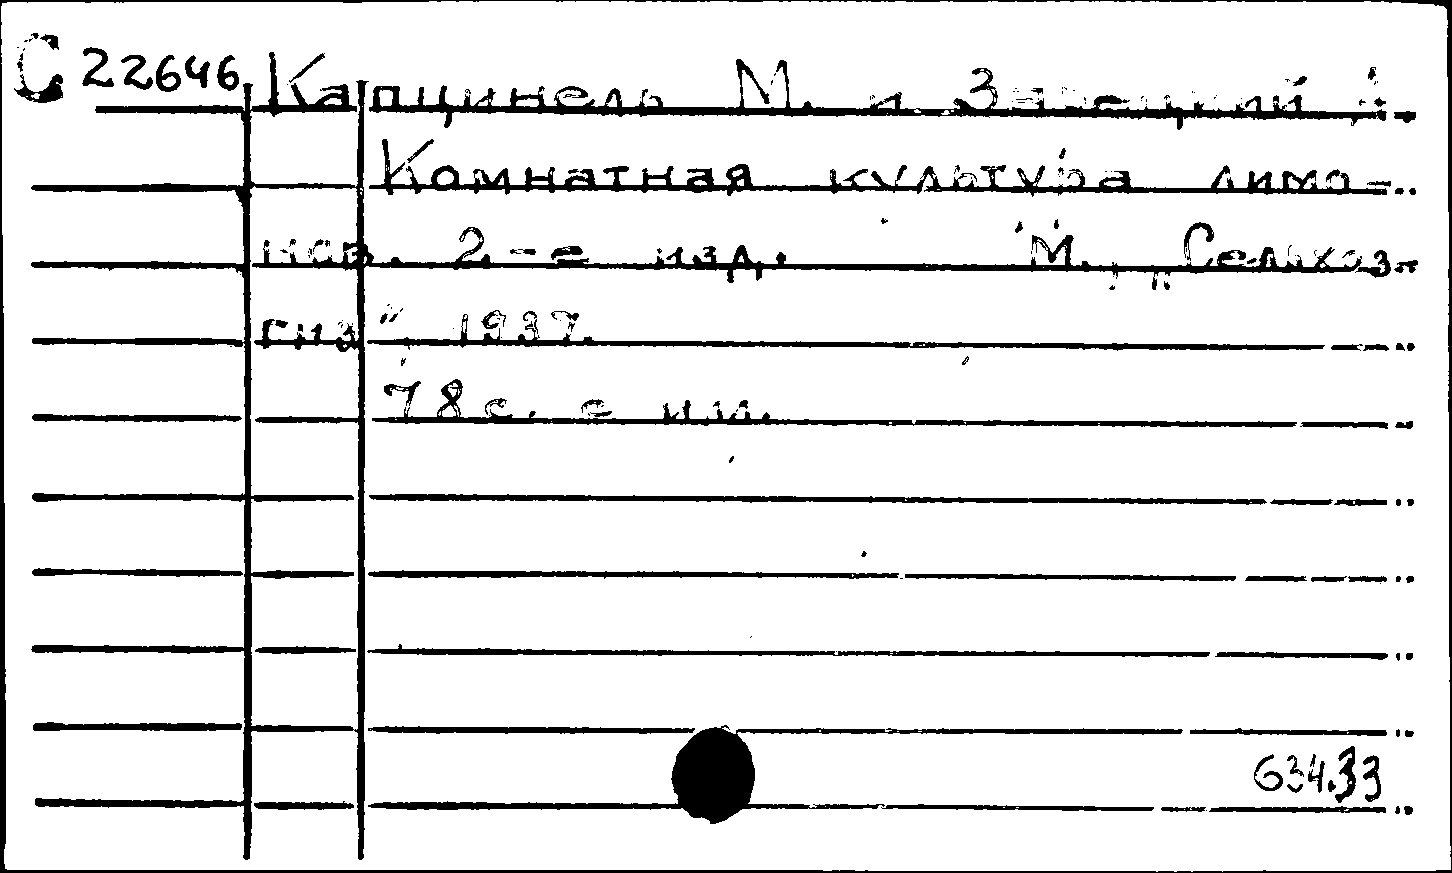 С 22646 Капцинель М. и Зарецкий А.
Комнатная культура лимо-
нов. 2-е изд. М., „Сельхоз-
гиз", 1937.
78 с. с илл.
634.33